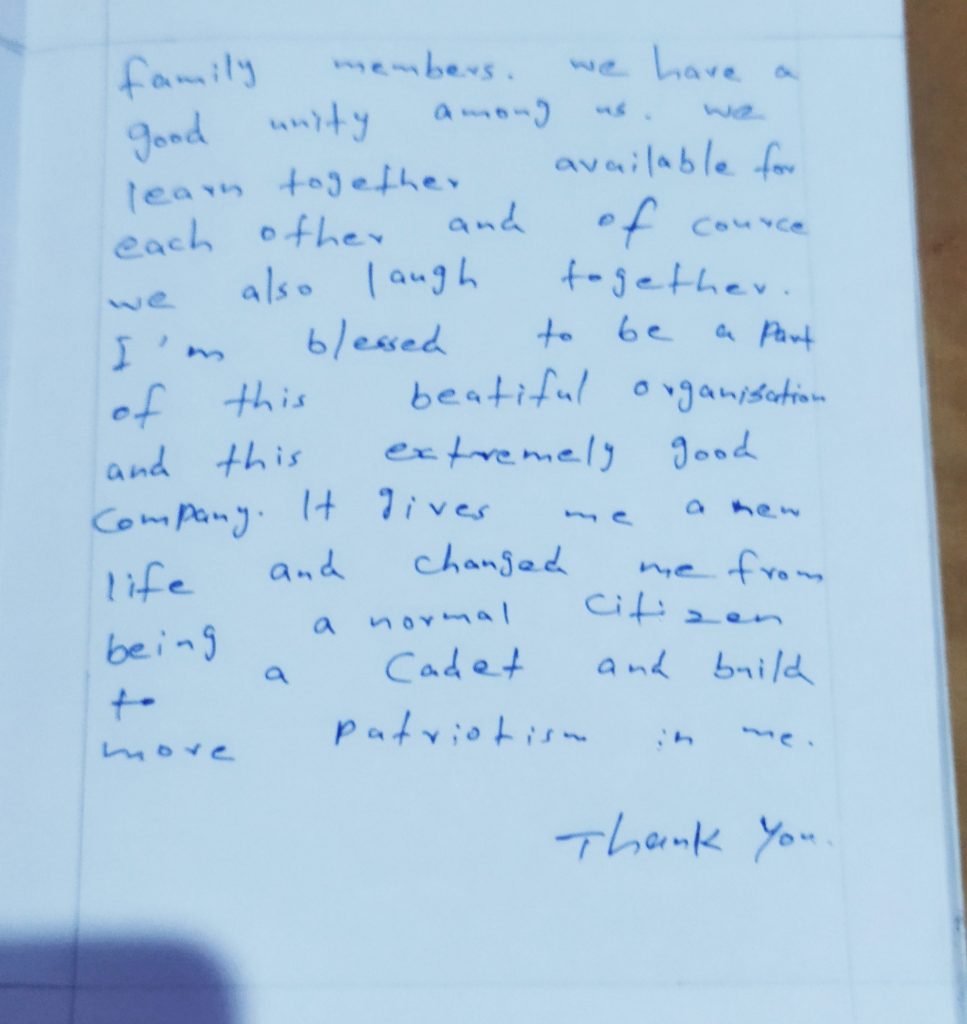 family members. we have a
good unity among us. we
learn together available for
each other and of cource
we also laugh together.
I'm blessed to be a part
of this beatiful organisation
and this extremely good
Company. It gives me a new
life and changed me from
being a normal citizen
to a Cadet and build
more patriotism in me.
Thank You.